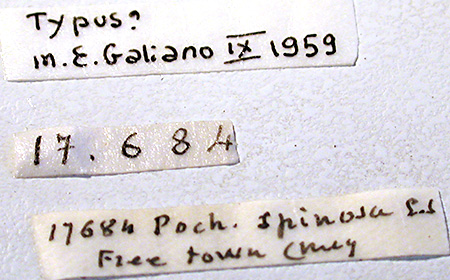 Typus?
M.E. Galiano IX 1959
17.684
17684 Poch. spinosa E.S
Free town